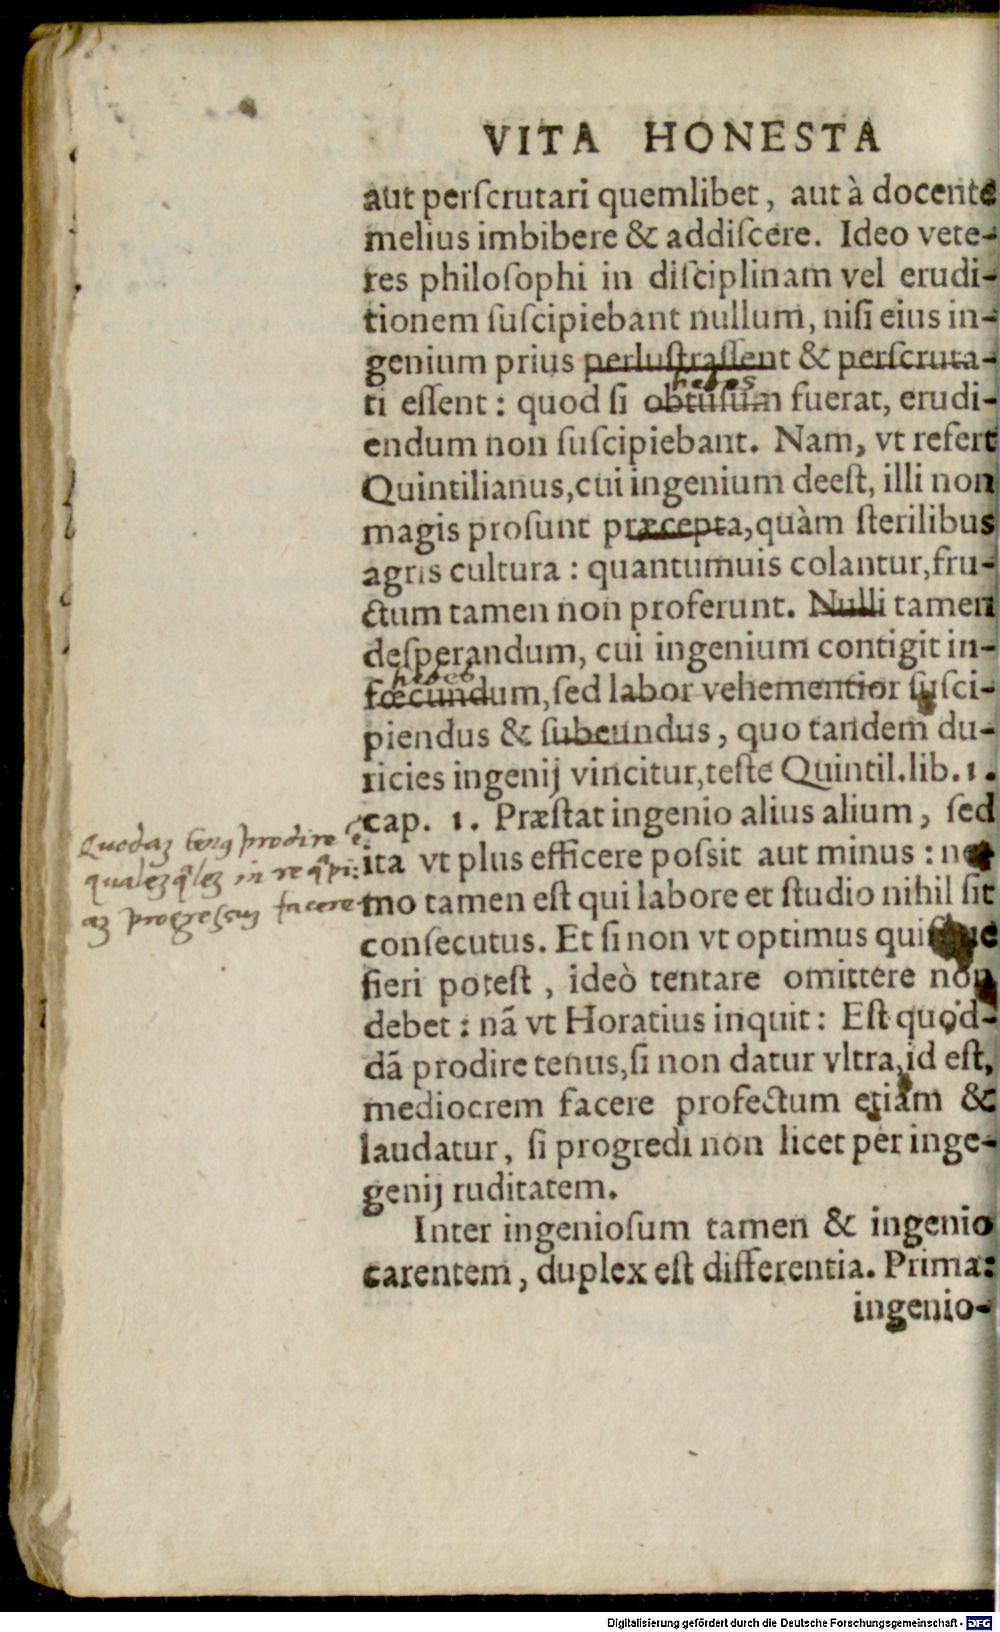 VITA HONESTA
aut perſcrutari quemlibet, aut à docente
melius imbibere & addiſcere. Ideo vete-
res philoſophi in diſciplinam vel erudi-
tionem ſuſcipiebant nullum, niſi eius in-
genium prius perluſtraſſent & perſcruta-
hebes
ti eſſent: quod ſi obtuſum fuerat, erudi-
endum non ſuſcipiebant. Nam, vt refert
Quintilianus, cui ingenium deeſt, illi non
magis proſunt præcepta, quàm ſterilibus
agris cultura: quantumuis colantur, fru-
ctum tamen non proferunt. Nulli tamen
deſperandum, cui ingenium contigit in-
hebes
fœcundum, ſed labor vehementior ſuſci-
piendus & ſubeundus, quo tandem du-
ricies ingenij vincitur, teſte Quintil. lib. 1.
cap. 1. Præſtat ingenio alius alium, ſed
ita vt plus efficere poſsit aut minus: ne-
mo tamen eſt qui labore et ſtudio nihil ſit
conſecutus. Et ſi non vt optimus quiſque
fieri poteſt, ideò tentare omittere non
debet: nã vt Horatius inquit: Eſt quod-
dã prodire tenus, ſi non datur vltra, id eſt,
mediocrem facere profectum etiam &
laudatur, ſi progredi non licet per inge-
genij ruditatem.
Inter ingenioſum tamen & ingenio
carentem, duplex eſt differentia. Prima:
ingenio-
Quodaz prodire
in re
progressuz facere